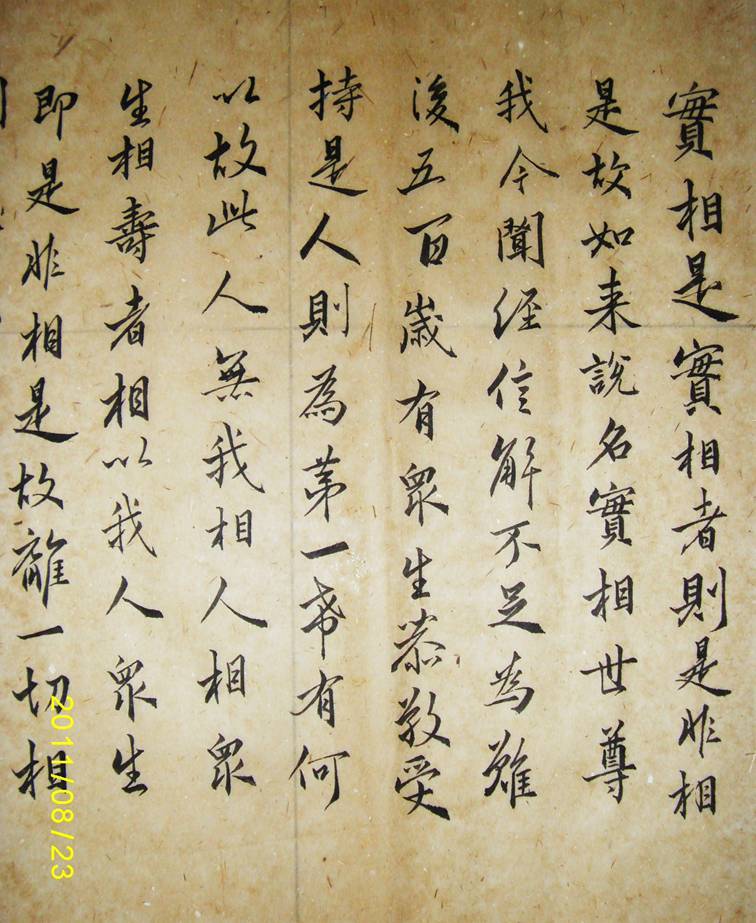 實相是實相者則是非相
是故如来說名實相世尊
我今聞經信解不足為難
後五百歲有眾生恭敬受
持是人則為第一希有何
以故此人無我相人相眾
生相壽者相以我人眾生
即是非相是故離一切相
2011/08/23